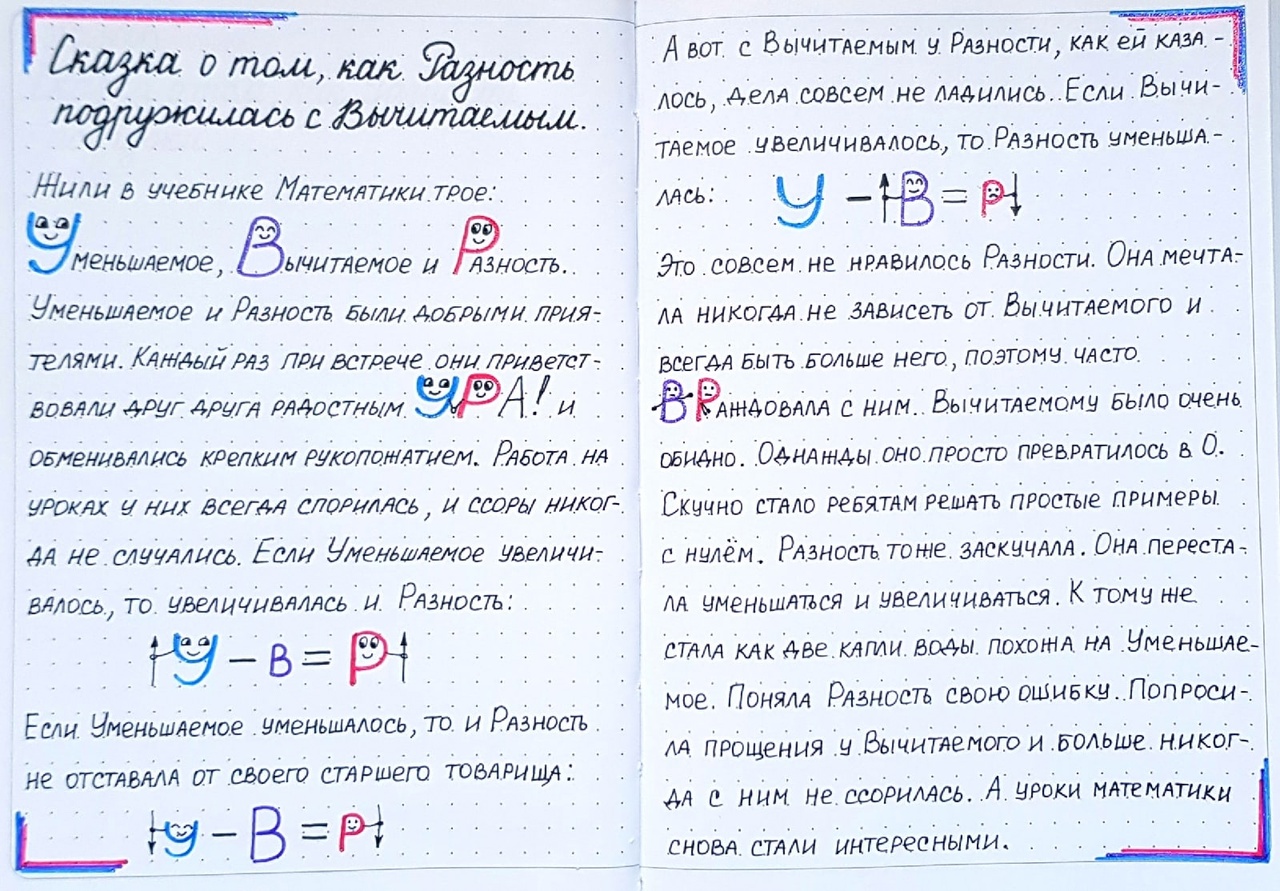 Сказка о том, как Разность
подружилась с Вычитаемым.
Жили в учебнике Математики трое:
Уменьшаемое, Вычитаемое и Разность.
Уменьшаемое и Разность были добрыми прия-
телями. Каждый раз при встрече они приветст-
вовали друг друга радостным УРА! и
обменивались крепким рукопожатием. Работа на
уроках у них всегда спорилась, и ссоры никог-
да не случались. Если Уменьшаемое увеличи-
валось, то увеличивалась и Разность:
↑У – В = Р↑
Если Уменьшаемое уменьшалось, то и Разность
не отставала от своего старшего товарища:
↓У – В = Р↓
А вот с Вычитаемым у Разности, как ей каза-
лось, дела совсем не ладились. Если Вычи-
таемое увеличивалось, то Разность уменьша-
лась: У – ↑В = Р↓
Это совсем не нравилось Разности. Она мечта-
ла никогда не зависеть от Вычитаемого и
всегда быть больше него, поэтому часто
ВРаждовала с ним. Вычитаемому было очень
обидно. Однажды оно просто превратилось в 0.
Скучно стало ребятам решать простые примеры
с нулём. Разность тоже заскучала. Она переста-
ла уменьшаться и увеличиваться. К тому же
стала как две капли воды похожа на Уменьшае-
мое. Поняла Разность свою ошибку. Попроси-
ла прощения у Вычитаемого и больше никог-
да с ним не ссорилась. А уроки математики
снова стали интересными.